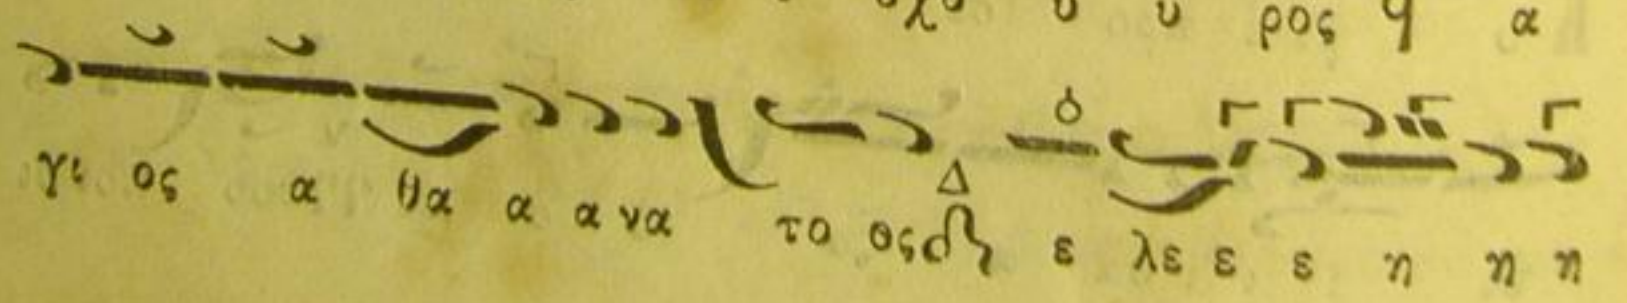 ρος α
γι ος α θα α α να το ος Δ ε λε ε ε η η η